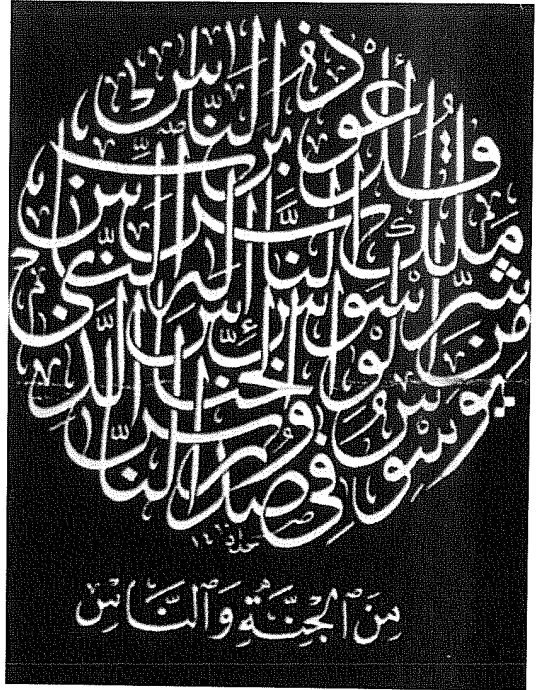 قُلْ أَعُوذُ بِرَبِّ النَّاسِ
مَلِكِ النَّاسِ إِلَٰهِ النَّاسِ
مِن شَرِّ الْوَسْوَاسِ الْخَنَّاسِ
الَّذِي يُوَسْوِسُ
فِي صُدُورِ النَّاسِ
مِنَ ٱلْجِنَّةِ وَٱلنَّاسِ